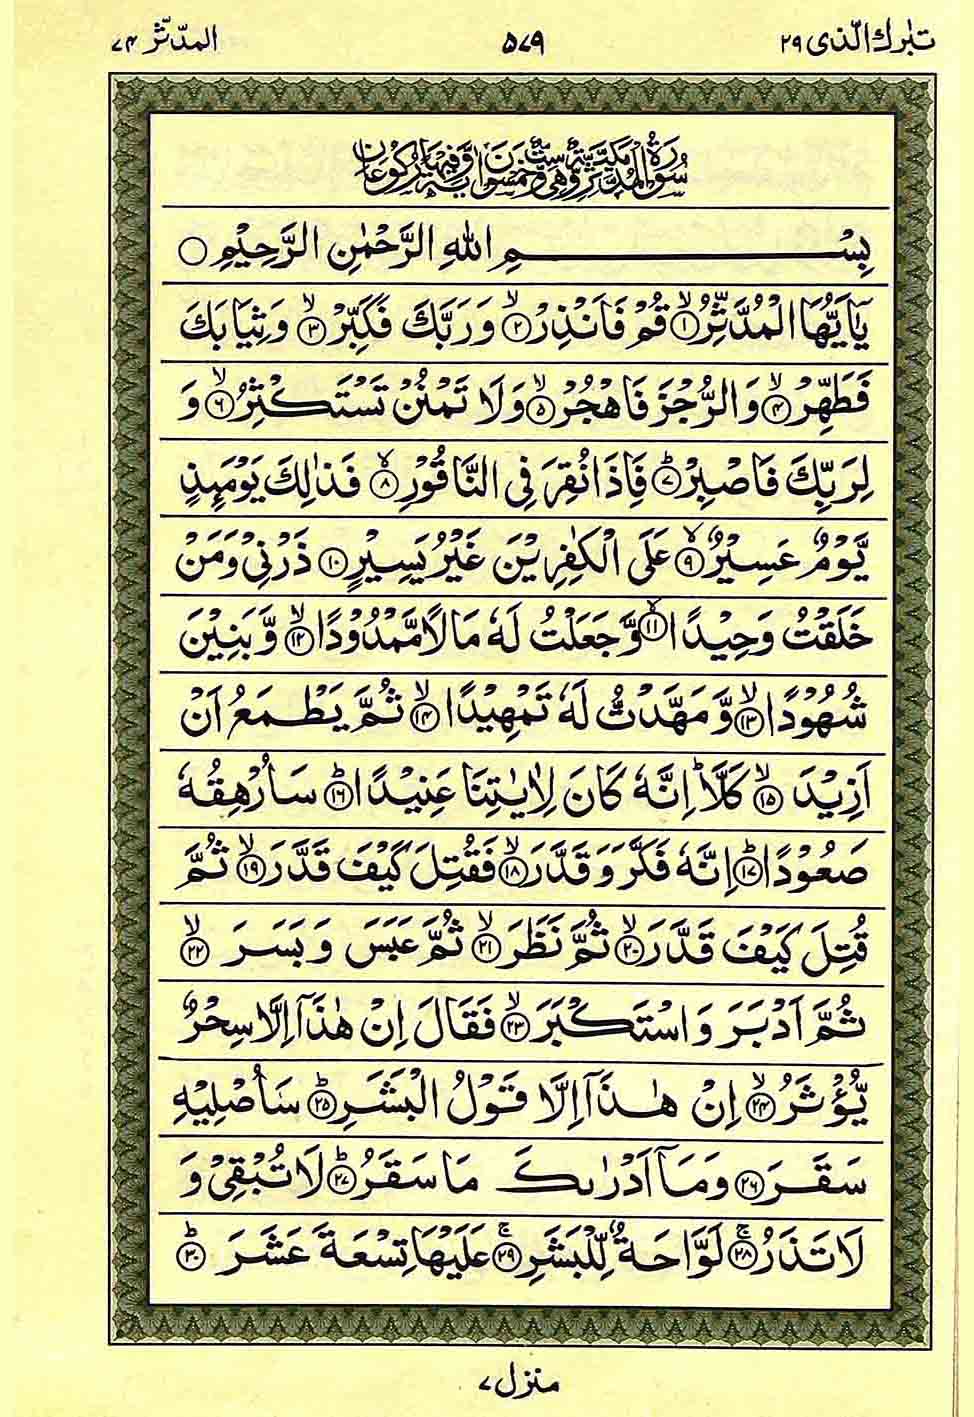 تبٰرك الّذی ۲۹
۵۷۹
المدّثّر ۷۴
سُوْرَةُ الْمُدَّثِّرِ مَكِّيَّةٌ وَّهِيَ سِتٌّ وَّخَمْسُوْنَ اٰيَةً وَّفِيْهَا رُكُوْعَانِ
بِسْمِ اللهِ الرَّحْمٰنِ الرَّحِيْمِ ○
يٰۤاَيُّهَا الْمُدَّثِّرُ ۙ﴿۱﴾ قُمْ فَاَنْذِرْ ۙ﴿۲﴾ وَ رَبَّكَ فَكَبِّرْ ۙ﴿۳﴾ وَ ثِيَابَكَ
فَطَهِّرْ ۙ﴿۴﴾ وَ الرُّجْزَ فَاهْجُرْ ۙ﴿۵﴾ وَلَا تَمْنُنْ تَسْتَكْثِرُ ۙ﴿۶﴾ وَ
لِرَبِّكَ فَاصْبِرْ ؕ﴿۷﴾ فَاِذَا نُقِرَ فِی النَّاقُوْرِ ۙ﴿۸﴾ فَذٰلِكَ يَوْمَىِٕذٍ
يَّوْمٌ عَسِيْرٌ ۙ﴿۹﴾ عَلَى الْكٰفِرِيْنَ غَيْرُ يَسِيْرٍ ﴿۱۰﴾ ذَرْنِیْ وَ مَنْ
خَلَقْتُ وَحِيْدًا ۙ﴿۱۱﴾ وَّ جَعَلْتُ لَهٗ مَالًا مَّمْدُوْدًا ۙ﴿۱۲﴾ وَّ بَنِيْنَ
شُهُوْدًا ۙ﴿۱۳﴾ وَّ مَهَّدْتُّ لَهٗ تَمْهِيْدًا ۙ﴿۱۴﴾ ثُمَّ يَطْمَعُ اَنْ
اَزِيْدَ ۙ﴿۱۵﴾ كَلَّا ؕ اِنَّهٗ كَانَ لِاٰيٰتِنَا عَنِيْدًا ؕ﴿۱۶﴾ سَاُرْهِقُهٗ
صَعُوْدًا ؕ﴿۱۷﴾ اِنَّهٗ فَكَّرَ وَ قَدَّرَ ۙ﴿۱۸﴾ فَقُتِلَ كَيْفَ قَدَّرَ ۙ﴿۱۹﴾ ثُمَّ
قُتِلَ كَيْفَ قَدَّرَ ۙ﴿۲۰﴾ ثُمَّ نَظَرَ ۙ﴿۲۱﴾ ثُمَّ عَبَسَ وَ بَسَرَ ۙ﴿۲۲﴾
ثُمَّ اَدْبَرَ وَ اسْتَكْبَرَ ۙ﴿۲۳﴾ فَقَالَ اِنْ هٰذَاۤ اِلَّا سِحْرٌ
يُّؤْثَرُ ۙ﴿۲۴﴾ اِنْ هٰذَاۤ اِلَّا قَوْلُ الْبَشَرِ ؕ﴿۲۵﴾ سَاُصْلِيْهِ
سَقَرَ ﴿۲۶﴾ وَ مَاۤ اَدْرٰىكَ مَا سَقَرُ ؕ﴿۲۷﴾ لَا تُبْقِیْ وَ
لَا تَذَرُ ۚ﴿۲۸﴾ لَوَّاحَةٌ لِّلْبَشَرِ ۚ﴿۲۹﴾ عَلَيْهَا تِسْعَةَ عَشَرَ ؕ﴿۳۰﴾
منزل ۷